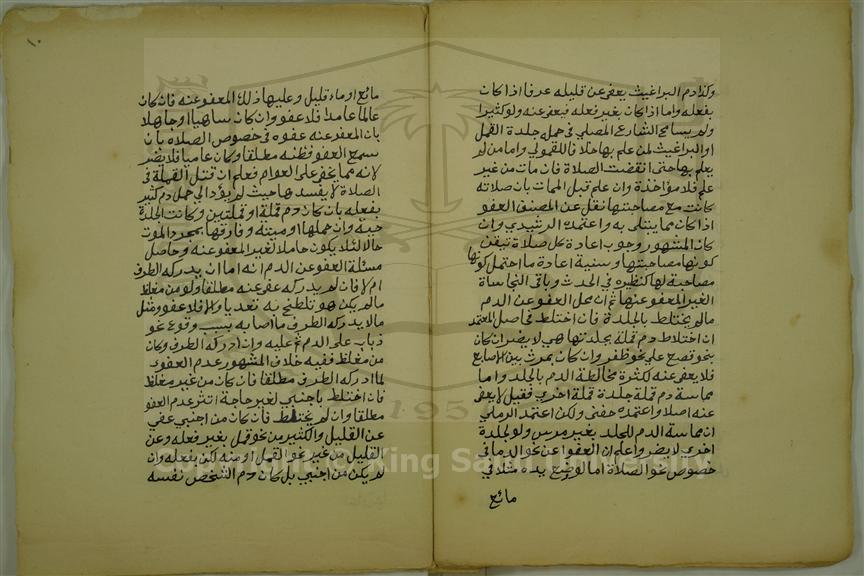 وكذا دم البراغيث يعفى عن قليله عرفا اذا كان
بفعله واما اذا كان بغير فعله فيعفى عنه ولو كثيرا
ولم يسامح الشارع المصلي في حمله جلدة القمل
او البراغيث لمن علم بها خلافا للقمولي واما من لم
يعلم بها حتى انقضت الصلاة فان مات من غير
علم فلا مؤاخذة وان علم قبل الممات بان صلاته
كانت مع مصاحبتها نقل عن المصنف العفو
اذا كان مما يبتلى به واعتمده الرشيدي وان
كان المشهور وجوب اعادة كل صلاة تيقن
كونها مصاحبتها وسنية اعادة ما احتمل كونها
مصاحبة لها كنظيره في الحدث وباقي النجاسات
الغير المعفو عنها ثم ان محل العفو عن الدم
ما لم يختلط بالجلدة فان اختلط في اصل المعتمد
ان اختلاط دم قملة بجلدتها هي لا يضر ان كان
بنحو قصع على نحو ظفر وان كان بمرث بين الاصابع
فلا يعفى عنه لكثرة مخالطة الدم بالجلد واما
مماسة دم قملة جلدة قملة اخرى فقيل لا يعفى
عنه اصلا واعتمده حفني ولكن اعتمد الرملي
ان مماسة الدم للجلد بغير مرس ولو لجلدة
اخرى لا يضر واعلم ان العفو عن نحو الدم انما في
خصوص نحو الصلاة اما لو وضع يده مثلا في
مائع
١٠
مائع او ماء قليل وعليها ذلك المعفو عنه فان كان
عالما عامدا فلا عفو وان كان ساهيا او جاهلا
بان المعفو عنه عفوه في خصوص الصلاة بان
سمع العفو فظنه مطلقا وكان عاميا فلا يضر
لانه مما يخفى على العوام فعلم ان قتل القملة في
الصلاة لا يفسدها حيث لم يؤد الى حمل دم كثير
بفعله بان كان دم قملة او قملتين وكانت الجلدة
حية وان حملها او ميتة وفارقها بمجرد الموت
حالا لئلا يكون حاملا لغير المعفو عنه وحاصل
مسئلة العفو عن الدم انه اما ان يدركه الطرف
ام لا فان لم يدركه عفو عنه مطلقا ولو من مغلظ
ما لم يكن هو تلطخ به تعديا والا فلا عفو ومثل
ما لا يدركه الطرف ما اصابه بسبب وقوع نحو
ذباب على الدم ثم عليه وان ادركه الطرف وكان
من مغلظ ففيه خلاف المشهور عدم العفو
لما ادركه الطرف مطلقا فان كان من غير مغلظ
فان اختلط باجنبي لغير حاجة اثر عدم العفو
مطلقا وان لم يختلط فان كان من اجنبي عفي
عن القليل والكثير من نحو قمل بغير فعله وعن
القليل من غير نحو القمل او منه لكن بفعله وان
لم يكن من اجنبي بل كان دم الشخص نفسه
Copyright © King Saud University
1957